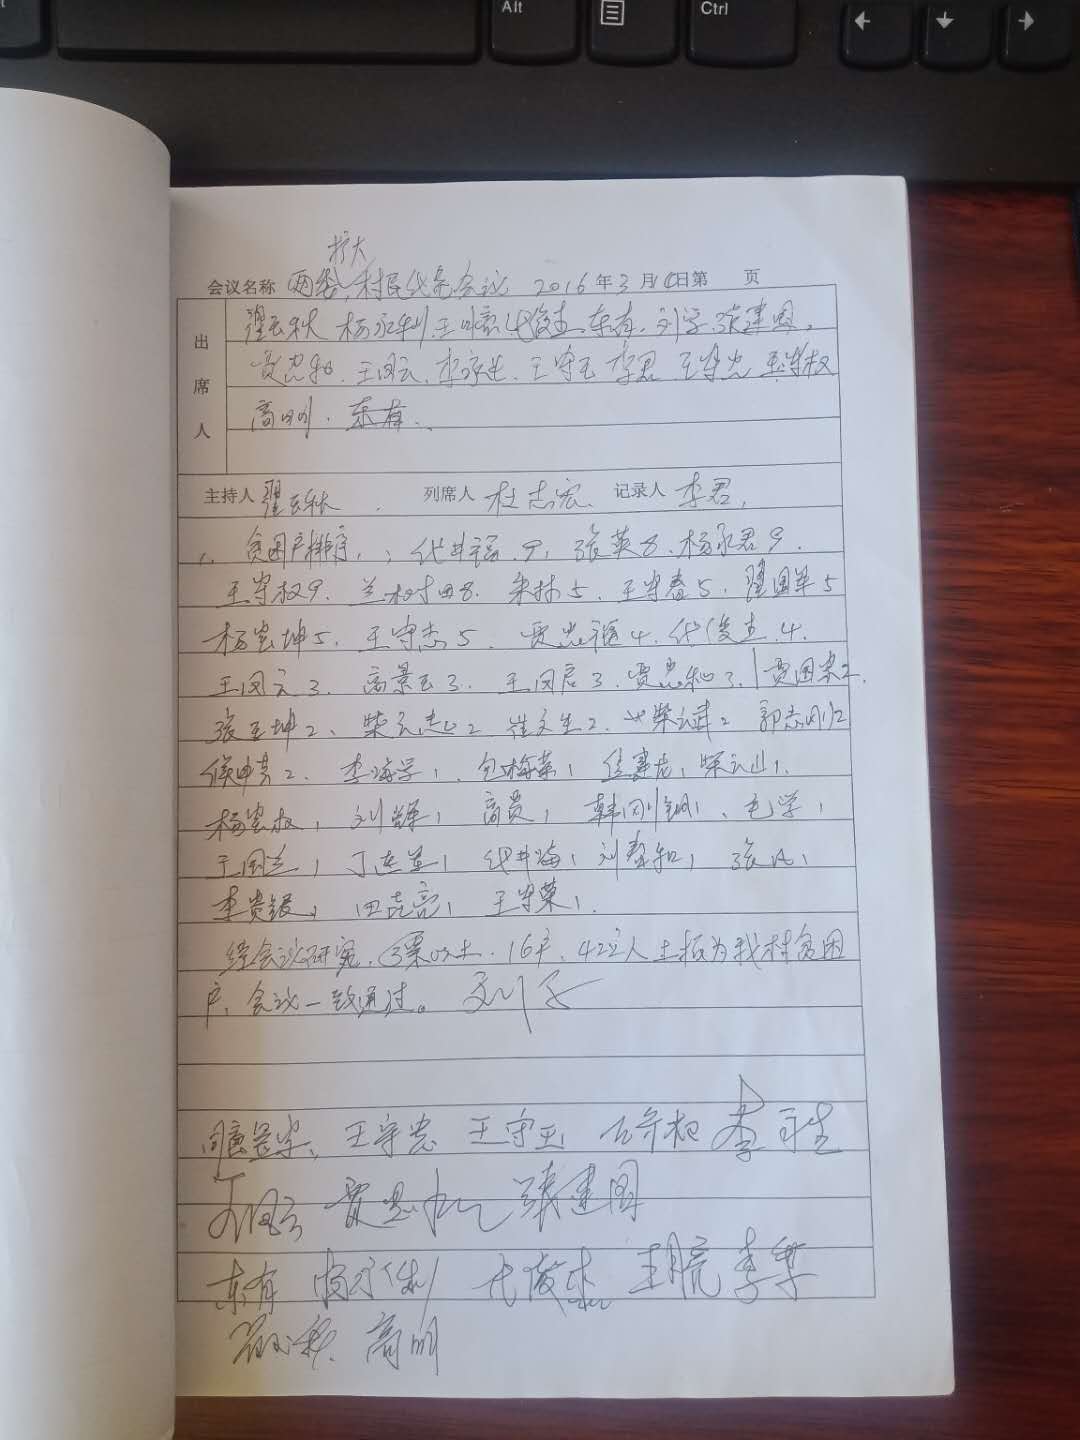 Alt
Ctrl
扩大
会议名称 两委, 村民代表会议 2016年3月 日第 页
出席人
翟云秋 杨永利 王明亮 代俊杰 东有 刘学 张建国
贾忠和 王凤云 李永生 王守玉 李君 王守忠 王守权
高明 东有
主持人 翟云秋 列席人 杜志宏 记录人 李君
1、贫困户排序: 代井福 9, 张英8 杨永君9
王守权9 兰树田8 朱林5 王守春5 翟国军5
杨宝坤5 王守志5 贾忠福4 代俊杰4
王凤云3 高景玉3 王凤启3 贾忠和3 贾国荣2
张玉坤2 柴云志2 崔文生2 柴云武2 郭志刚2
侯申吉2 李海学1 包梅荣1 柴云山1
杨宝权1 刘辉1 高贵1 韩刚1 毛学1
王国兰1 丁连军1 代井海1 刘春和1 张凡1
李贵银1 田喜亮1 王守荣1
经会议研究, 3票以上 16户 42人上报为我村贫困
户, 会议一致通过。 刘学
王守忠 王守玉 王守权 李永生
王凤云 贾忠和 张建国
东有 杨永利 代俊杰 王明亮 李君
翟云秋 高明